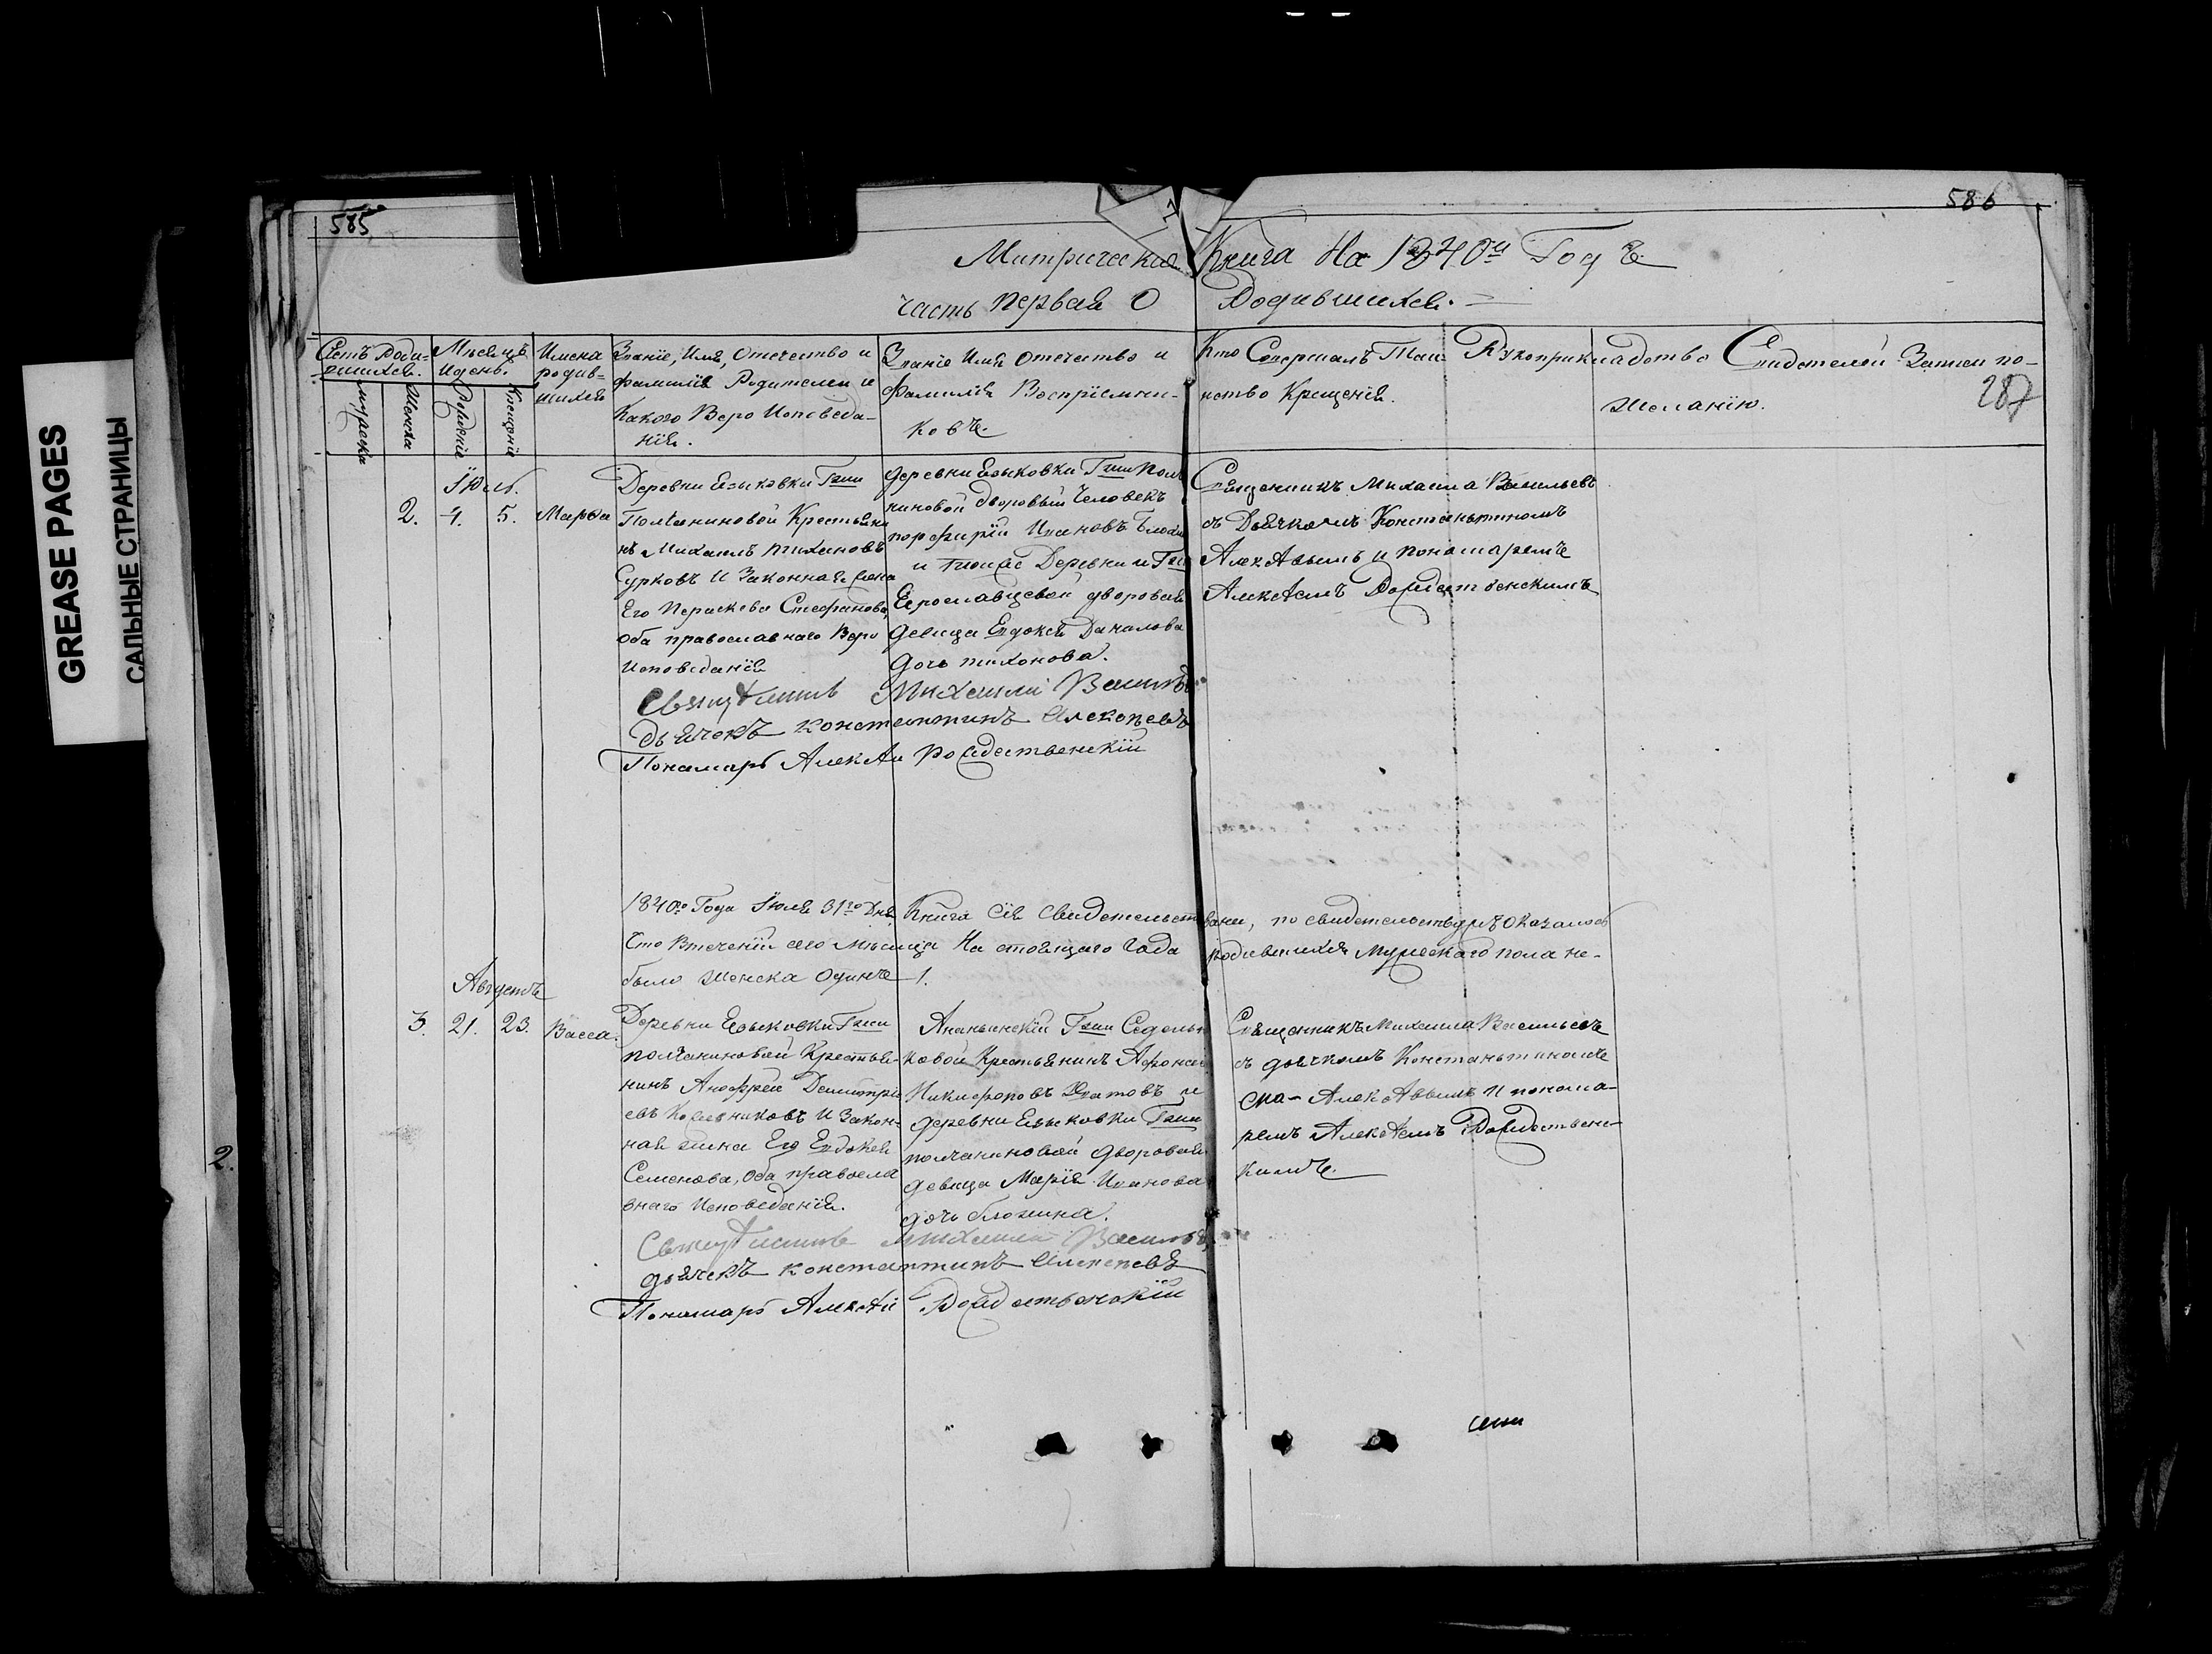 GREASE PAGES
САЛЬНЫЕ СТРАНИЦЫ
585
586
Митрическая Книга На 1840й Годъ
часть первая О Родившихся.
Счетъ Роди-
вшихся.
мужеска
Женска
Мѣсяцъ
и день.
Рожденіе
Крещеніе
Имена
родив-
шихся
Званіе, Имя, Отечество и
фамилія Родителей и
Какого Веро Исповеда-
нія.
Званіе Имя Отечество и
Фамилія Воспріемни-
ковъ.
Кто Совершалъ Таи-
нство Крещенія.
Рукоприкладство Свидетелей Записи по-
желанію.
287
Іюль.
2. 4. 5. Марфа
Деревни Языковки Гжи
Полчаниновой Крестьяни
нъ Михаилъ тихановъ
Сурковъ И Законная жена
Его Параскева Стефанова,
оба православнаго Веро
Исповеданія
деревни Языковки Гжи Полча
ниновой дворовый Человекъ
порфирій Ивановъ
и Деревни и Гжи
Ерославцевой дворовая
девица Евдокея Данилова
дочь тихонова.
Священникъ Михаила Васильевъ
съ Дьячкомъ Констаньтиномъ
Алекѣевымъ и пономаремъ
Алекѣемъ Рождественскимъ
Священникъ Михаилъ Василье
дьячекъ константинъ Алексѣевъ
Пономарь Алекѣи Рождественскій
1840го Года Іюля 31го Дня Книга Сія Свидетельствована, по свидетельству Оказалось
Что Втеченіи сего Мѣсяца На стоящаго Года родившихся Мужескаго пола не-
было женска Одинъ 1.
Августъ
3. 21. 23. Васса.
Деревни Языковки Гжи
полчаниновой Крестья-
нинъ Анофрей Димитрі
евъ И Закон-
ная жена Его Евдокея
Семенова, Оба правосла
внаго Исповеданія.
Ананьинскій Гжи Седельн
ковой Крестьянинъ Афонасей
Никифоровъ и
деревни Языковки Гжи
полчаниновой дворовая
девица Марія Иванова
дочь блохина.
Священникъ Михаила Васильевъ
съ дьячкомъ Констаньтиномъ
Алекѣевымъ и понома-
ремъ Алекѣемъ Рождественс-
кимъ.
Священникъ Михаилъ Василье
дьячекъ константинъ Алексѣевъ
Пономарь Алекѣй Рождественскій
2.